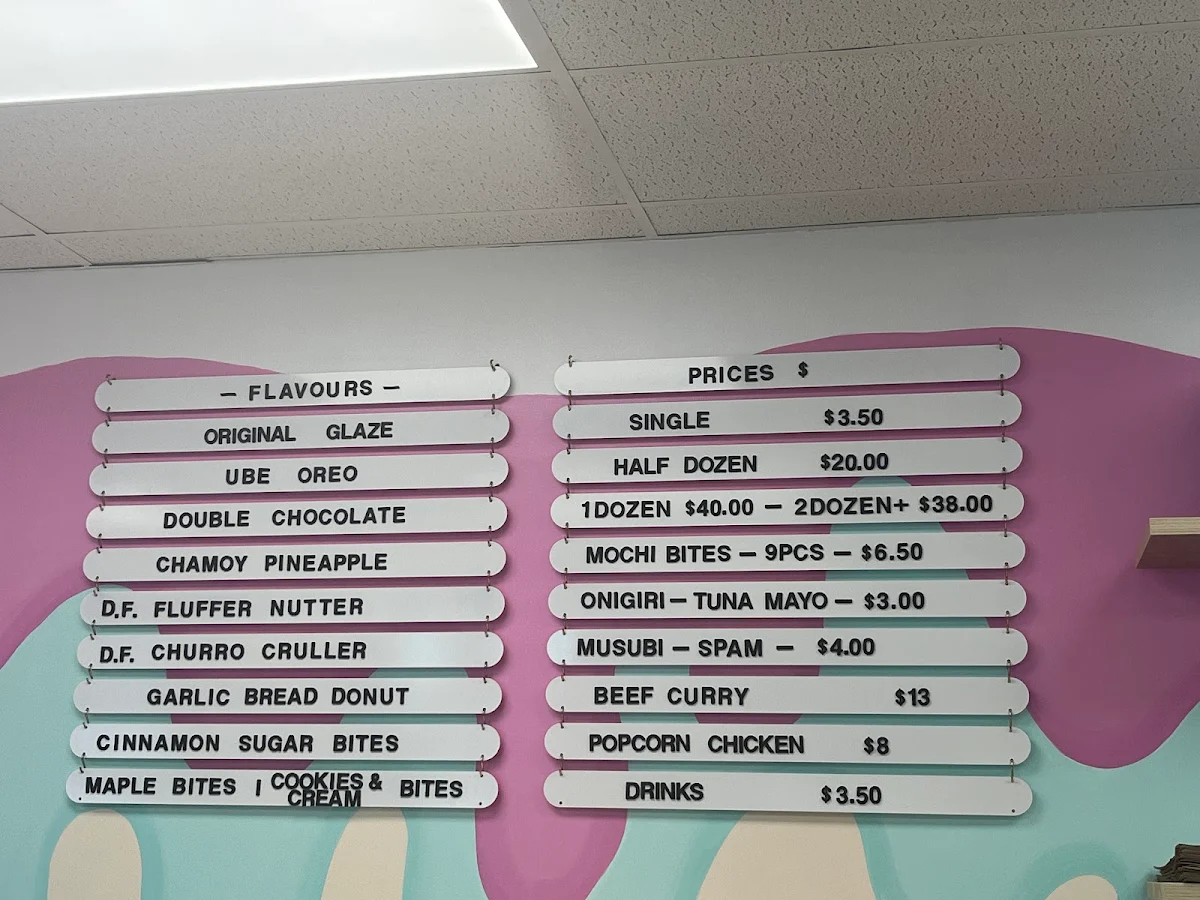 — FLAVOURS —
ORIGINAL GLAZE
UBE OREO
DOUBLE CHOCOLATE
CHAMOY PINEAPPLE
D.F. FLUFFER NUTTER
D.F. CHURRO CRULLER
GARLIC BREAD DONUT
CINNAMON SUGAR BITES
MAPLE BITES | COOKIES & CREAM BITES
PRICES $
SINGLE $3.50
HALF DOZEN $20.00
1DOZEN $40.00 — 2DOZEN+ $38.00
MOCHI BITES — 9PCS — $6.50
ONIGIRI — TUNA MAYO — $3.00
MUSUBI — SPAM — $4.00
BEEF CURRY $13
POPCORN CHICKEN $8
DRINKS $3.50